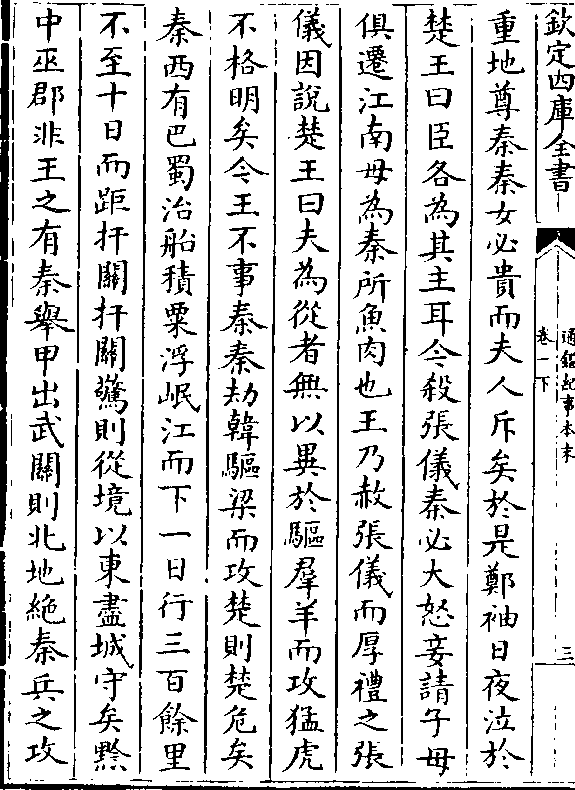 欽定四庫全書
通鑑紀事本末
卷一下
三
重地尊秦秦女必貴而夫人斥矣於是鄭袖日夜泣於
楚王曰臣各為其主耳今殺張儀秦必大怒妾請子母
俱遷江南毋為秦所魚肉也王乃赦張儀而厚禮之張
儀因說楚王曰夫為從者無以異於驅羣羊而攻猛虎
不格明矣今王不事秦秦劫韓驅梁而攻楚則楚危矣
秦西有巴蜀治船積粟浮岷江而下一日行三百餘里
不至十日而距扞關扞關驚則從境以東盡城守矣黔
中巫郡非王之有秦舉甲出武關則北地絶秦兵之攻